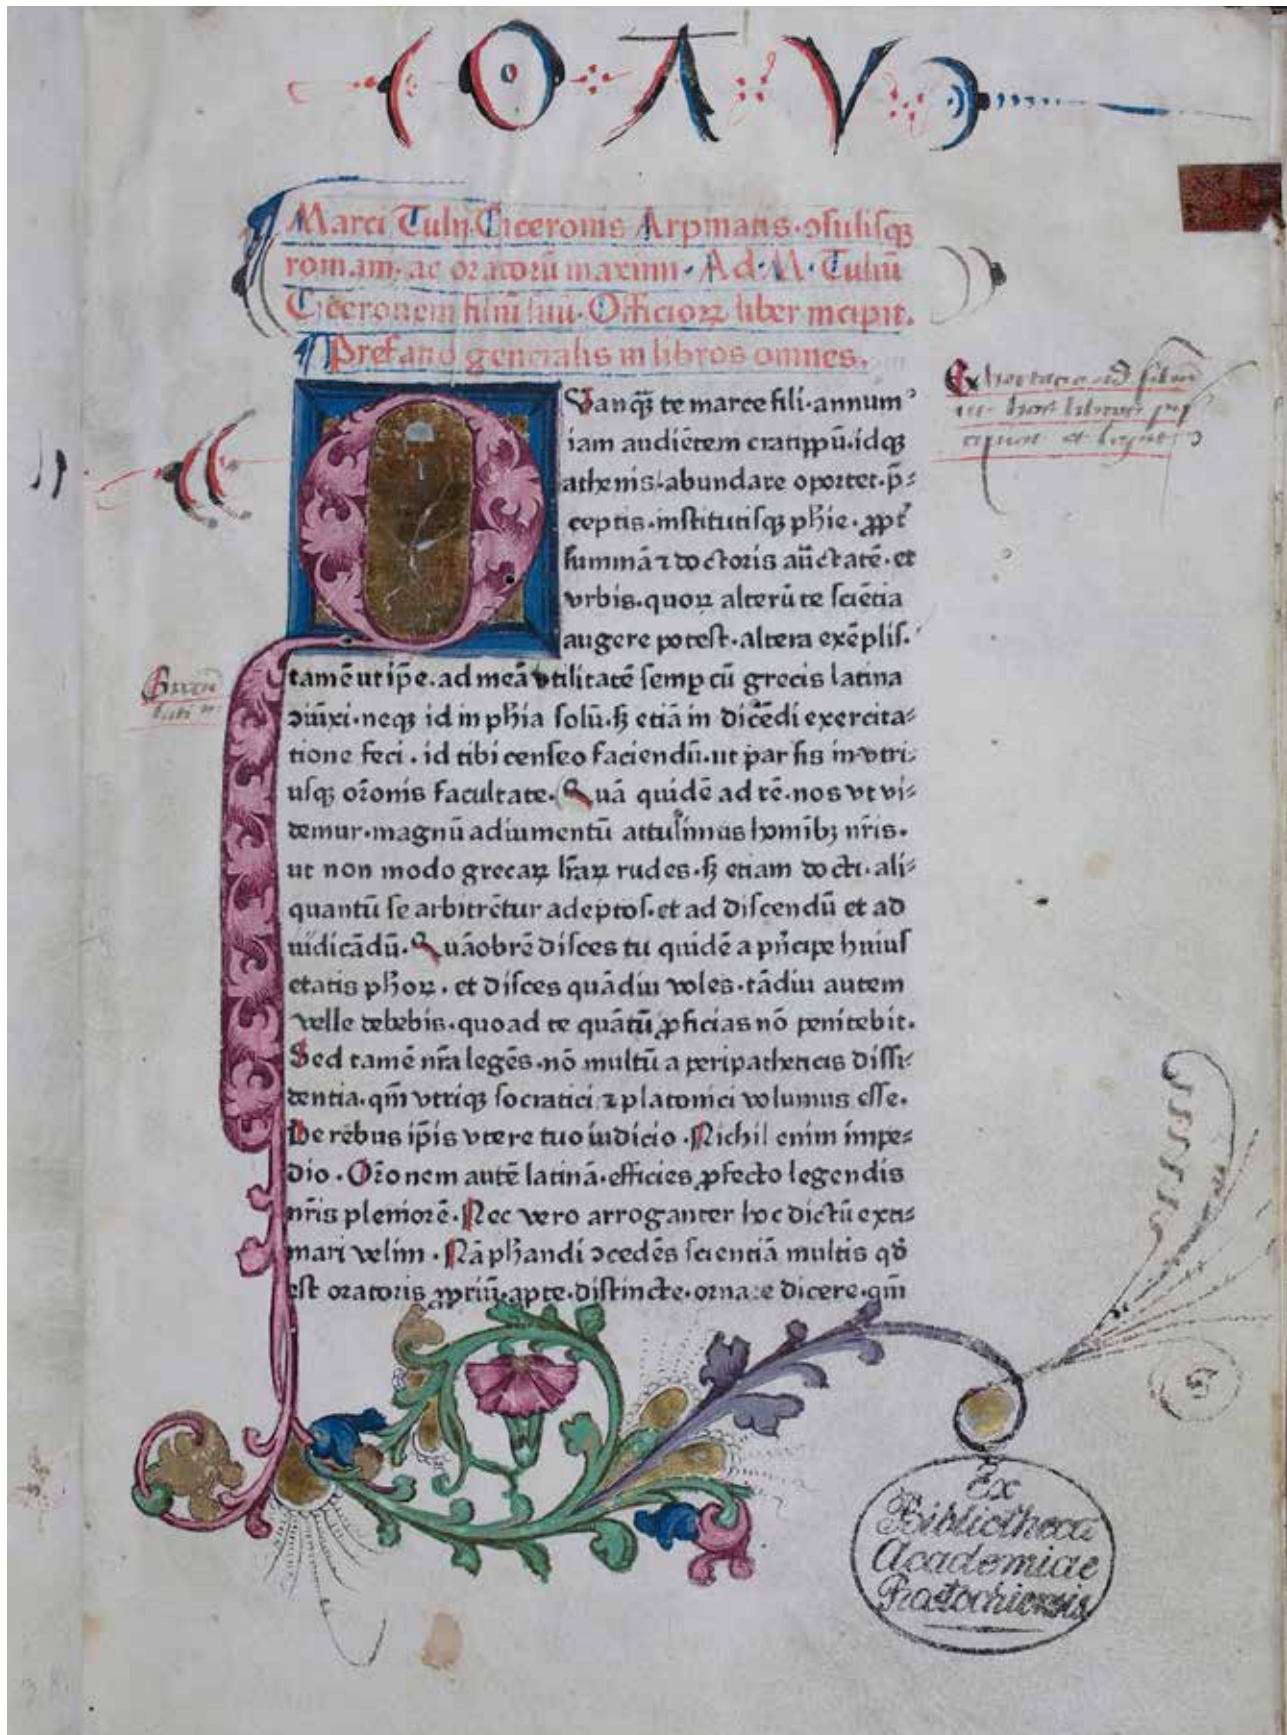 O A V
Marci Tulij Ciceronis Arpinatis· ꝯsulisqꝫ
romani· ac oratorū maximi· Ad· M· Tuliū
Ciceronem filiū suū· Officioꝝ liber incipit.
Prefatio generalis in libros omnes.
Uanqͣꝫ te marce fili·annum
iam audiētem cratippū·idqꝫ
athenis·abundare oportet·p̄⸗
ceptis·institutisqꝫ phīe·ꝓpt̄
summā ⁊ doctoris auc̄tatē·et
vrbis·quoꝝ alterū te sciētia
augere potest·altera exēplis·
tamē ut ip̄e·ad meā vtilitatē semꝑ cū grecis latina
ꝯiūxi·neqꝫ id in phīa solū·sꝫ etiā in dicēdi exercita⸗
tione feci·id tibi censeo faciendū·ut par sis in vtri⸗
usqꝫ or̄onis facultate· Quā quidē ad rē·nos vt vi⸗
demur·magnū adiumentū attulimus homībꝫ nr̄is·
ut non modo grecaꝝ lr̄aꝝ rudes·sꝫ etiam docti·ali⸗
quantū se arbitrētur adeptos·et ad discendū et ad
iudicādū· Quāobrē disces tu quidē a pn̄cipe huius
etatis ph̄oꝝ·et disces quādiu voles·tādiu autem
velle debebis·quoad te quātū ꝓficias nō penitebit·
Sed tamē nr̄a legēs·nō multū a peripatheticis dissi⸗
dentia·qm̄ vtriqꝫ socratici ⁊ platonici volumus esse·
De rebus ip̄is vtere tuo iudicio· Nichil enim impe⸗
dio· Or̄onem autē latinā·efficies ꝓfecto legendis
nr̄is pleniorē· Nec vero arroganter hoc dictū exti⸗
mari velim· Nā ph̄andi ꝯcedēs scientiā multis qd̄
est oratoris ꝓpriū·apte·distincte·ornate dicere·qm̄
Ex
Bibliotheca
Academiae